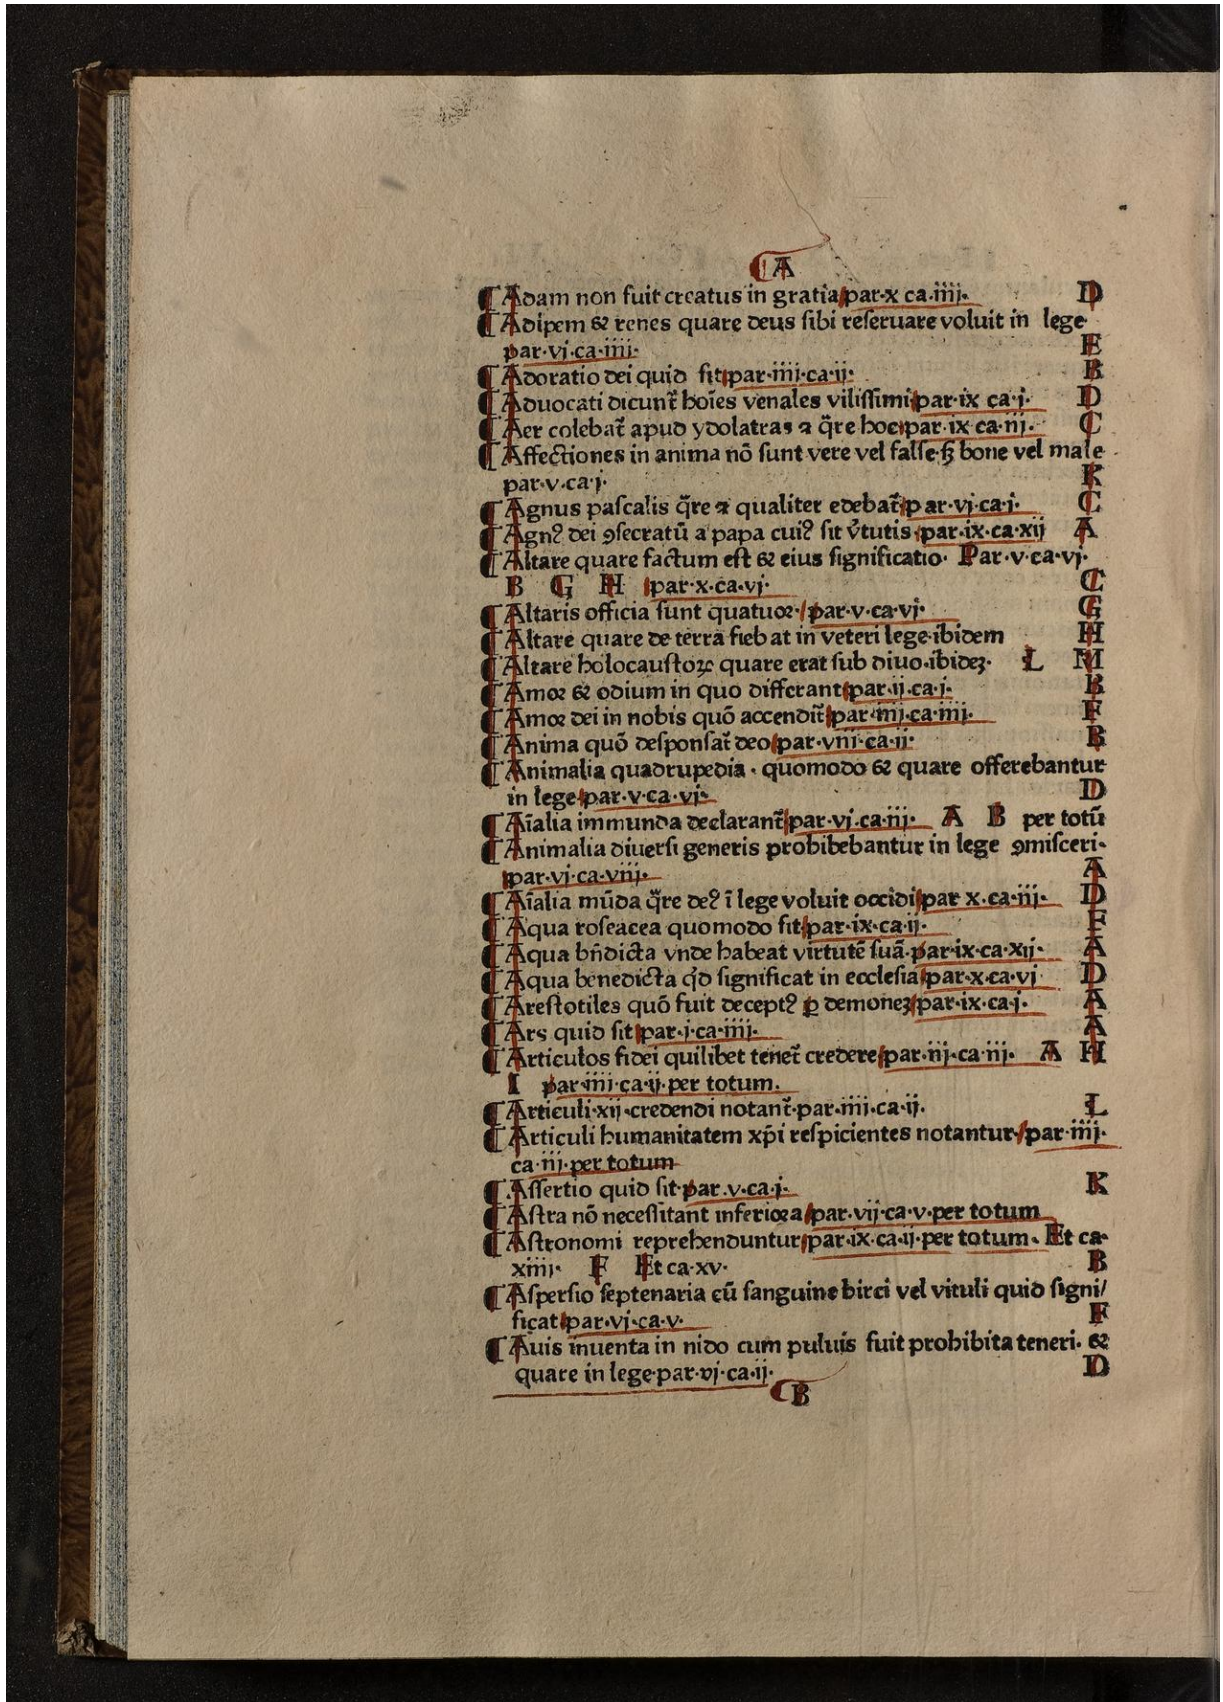 ¶ A
¶ Adam non fuit creatus in gratia par·x ca·iiij· D
¶ Adipem & renes quare deus sibi reseruare voluit in lege·
par·vj·ca·iiij· E
¶ Adoratio dei quid sit par·iiij·ca·ij· B
¶ Aduocati dicunt᷑ hoīes venales vilissimi par·ix ca·j· D
¶ Aer colebat᷑ apud ydolatras ⁊ q̄re hoc par·ix ca·iij· C
¶ Affectiones in anima nō sunt vere vel false·sꝫ bone vel male·
par·v·ca·j· K
¶ Agnus pascalis q̄re ⁊ qualiter edebat᷑ par·vj·ca·j· C
¶ Agnꝰ dei ꝯsecratū a papa cuiꝰ sit v̄tutis par·ix·ca·xij A
¶ Altare quare factum est & eius significatio· Par·v·ca·vj·
B G H par·x·ca·vj· C
¶ Altaris officia sunt quatuor·/par·v·ca·vj· G
¶ Altare quare de terra fiebat in veteri lege·ibidem H
¶ Altare holocaustoꝝ quare erat sub diuo·ibideꝫ· L M
¶ Amor & odium in quo differant par·ij·ca·j· B
¶ Amor dei in nobis quō accendit᷑ par·iiij·ca·iiij· F
¶ Anima quō desponsat᷑ deo par·viij·ca·ij· B
¶ Animalia quadrupedia · quomodo & quare offerebantur
in lege par·v·ca·vj· D
¶ Aīalia immunda declarant᷑ par·vj·ca·iij· A B per totū
¶ Animalia diuersi generis prohibebantur in lege ꝯmisceri·
par·vj·ca·viij· A
¶ Aīalia mūda q̄re deꝰ ī lege voluit occidi par x·ca·iij· D
¶ Aqua roseacea quomodo fit par·ix·ca·ij· F
¶ Aqua bn̄dicta vnde habeat virtutē suā·par·ix·ca·xij· A
¶ Aqua benedicta qd̄ significat in ecclesia par·x·ca·vj D
¶ Arestotiles quō fuit deceptꝰ ꝑ demoneꝫ par·ix·ca·j· A
¶ Ars quid sit par·j·ca·iiij· A
¶ Articulos fidei quilibet tenet᷑ credere par·iij·ca·iij· A H
I par·iiij·ca·ij·per totum.
¶ Articuli·xij·credendi notant᷑·par·iiij·ca·ij. L
¶ Articuli humanitatem xp̄i respicientes notantur·/par·iiij·
ca·iij·per totum
¶ Assertio quid sit·par·v·ca·j· K
¶ Astra nō necessitant inferiora par·vij·ca·v·per totum
¶ Astronomi reprehenduntur par·ix·ca·ij·per totum· Et ca·
xiiij· F Et ca·xv· B
¶ Aspersio septenaria cū sanguine hirci vel vituli quid signi/
ficat par·vj·ca·v· F
¶ Auis inuenta in nido cum puluis fuit prohibita teneri· &
quare in lege·par·vj·ca·ij· D
¶ B